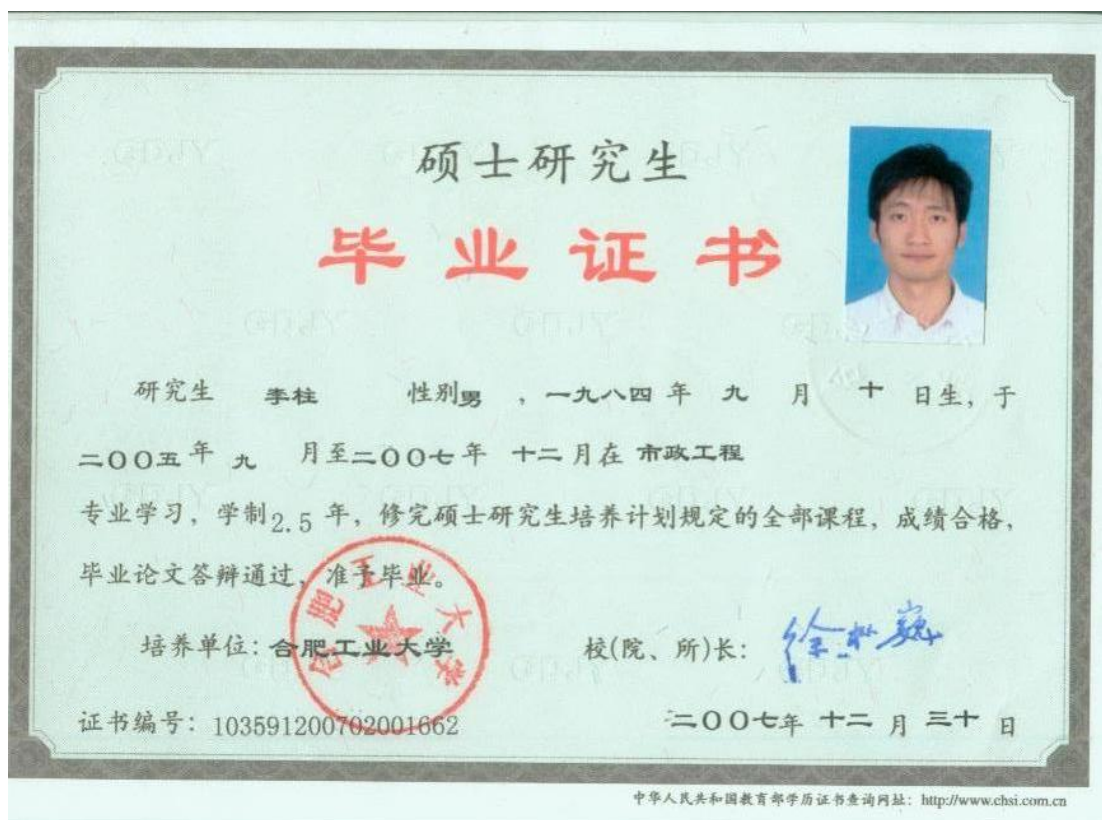 硕士研究生
毕业证书
研究生 李柱 性别男 ，一九八四 年 九 月 十 日生，于
二〇〇五 年 九 月至二〇〇七 年 十二 月在 市政工程
专业学习，学制2.5 年，修完硕士研究生培养计划规定的全部课程，成绩合格，
毕业论文答辩通过，准予毕业。
合肥工业大学
培养单位：合肥工业大学 校(院、所)长：
证书编号：103591200702001662 二〇〇七年 十二 月 三十 日
中华人民共和国教育部学历证书查询网址：http://www.chsi.com.cn